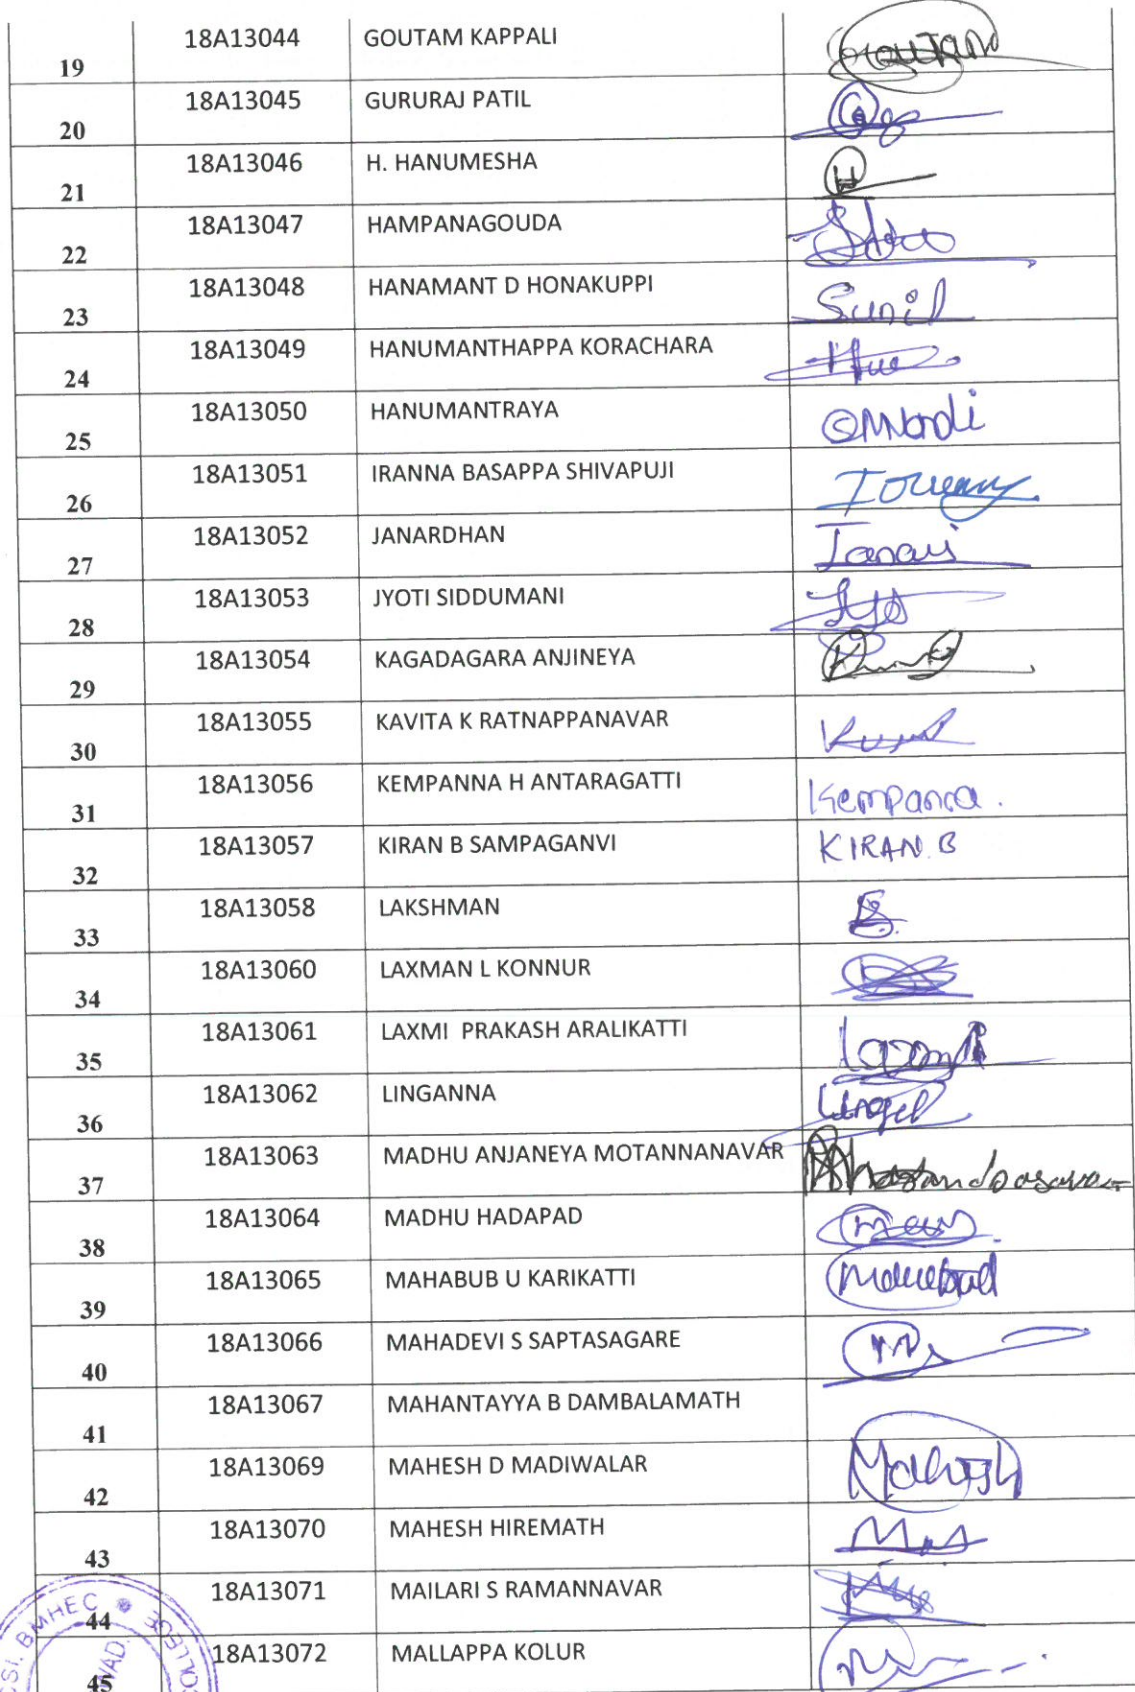 19 18A13044 GOUTAM KAPPALI Goutam
20 18A13045 GURURAJ PATIL
21 18A13046 H. HANUMESHA H
22 18A13047 HAMPANAGOUDA
23 18A13048 HANAMANT D HONAKUPPI Sunil
24 18A13049 HANUMANTHAPPA KORACHARA
25 18A13050 HANUMANTRAYA
26 18A13051 IRANNA BASAPPA SHIVAPUJI
27 18A13052 JANARDHAN
28 18A13053 JYOTI SIDDUMANI
29 18A13054 KAGADAGARA ANJINEYA
30 18A13055 KAVITA K RATNAPPANAVAR
31 18A13056 KEMPANNA H ANTARAGATTI Kempanna.
32 18A13057 KIRAN B SAMPAGANVI KIRAN. B
33 18A13058 LAKSHMAN
34 18A13060 LAXMAN L KONNUR
35 18A13061 LAXMI PRAKASH ARALIKATTI
36 18A13062 LINGANNA
37 18A13063 MADHU ANJANEYA MOTANNANAVAR
38 18A13064 MADHU HADAPAD
39 18A13065 MAHABUB U KARIKATTI
40 18A13066 MAHADEVI S SAPTASAGARE
41 18A13067 MAHANTAYYA B DAMBALAMATH
42 18A13069 MAHESH D MADIWALAR Mahesh
43 18A13070 MAHESH HIREMATH
44 18A13071 MAILARI S RAMANNAVAR
45 18A13072 MALLAPPA KOLUR
CSI. BMHEC